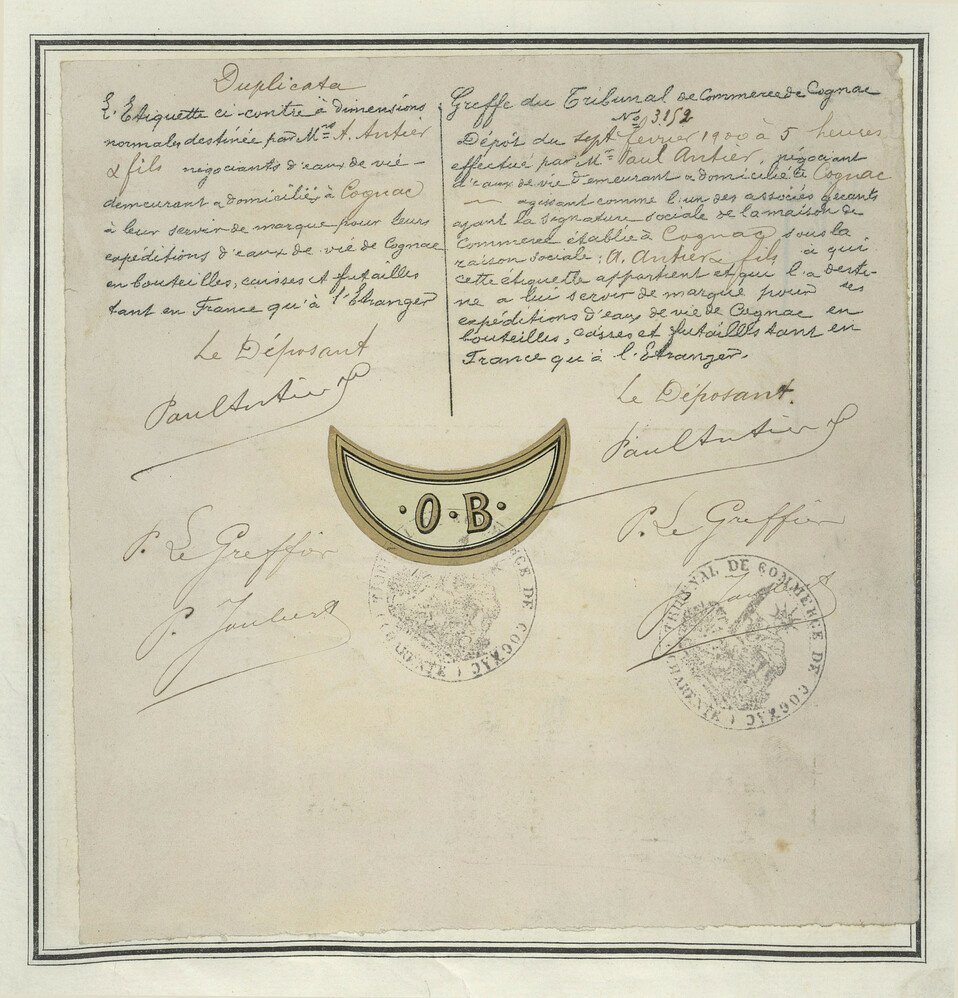 Duplicata
L'Etiquette ci-contre à dimensions
normales destinée par Mrs A. Antier
& fils négociants d'eaux de vie —
demeurant & domiciliés à Cognac
à leur servir de marque pour leurs
expéditions d'eaux de vie de Cognac
en bouteilles, caisses et futailles
tant en France qu'à l'Etranger
Le Déposant
Paul Antier
P. Le Greffier
P. Joubert
Greffe du Tribunal de Commerce de Cognac
No 3.152
Dépôt du sept février 1900 à 5 heures
effectué par Mr Paul Antier, négociant
d'eaux de vie demeurant & domicilié à Cognac
— agissant comme l'un des associés gérants
ayant la signature sociale de la maison de
Commerce établie à Cognac sous la
raison sociale: A. Antier & fils à qui
cette étiquette appartient et qui l'a desti-
né a lui servir de marque pour ses
expéditions d'eaux de vie de Cognac en
bouteilles, caisses et futailles tant en
France qu'à l'Etranger.
Le Déposant.
Paul Antier
P. Le Greffier
P. Joubert
· O · B ·
DE COGNAC
TRIBUNAL DE COMMERCE DE COGNAC (CHARENTE)